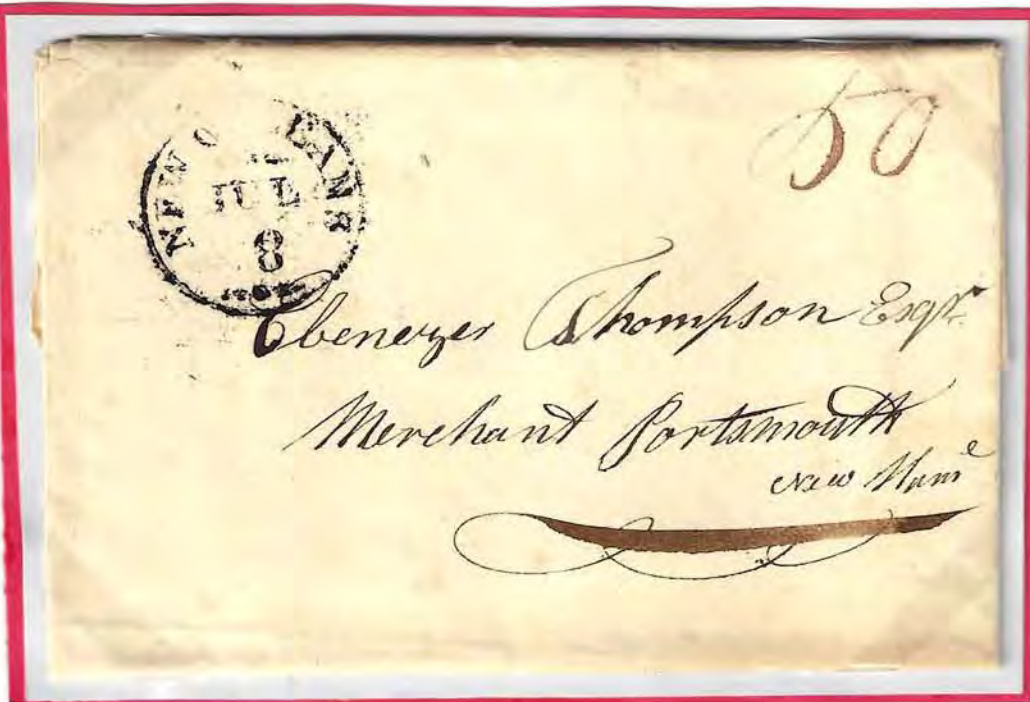 NEW ORLEANS
JUL
8
50
Ebenezer Thompson Esqr.
Merchant Portsmouth
New Hame